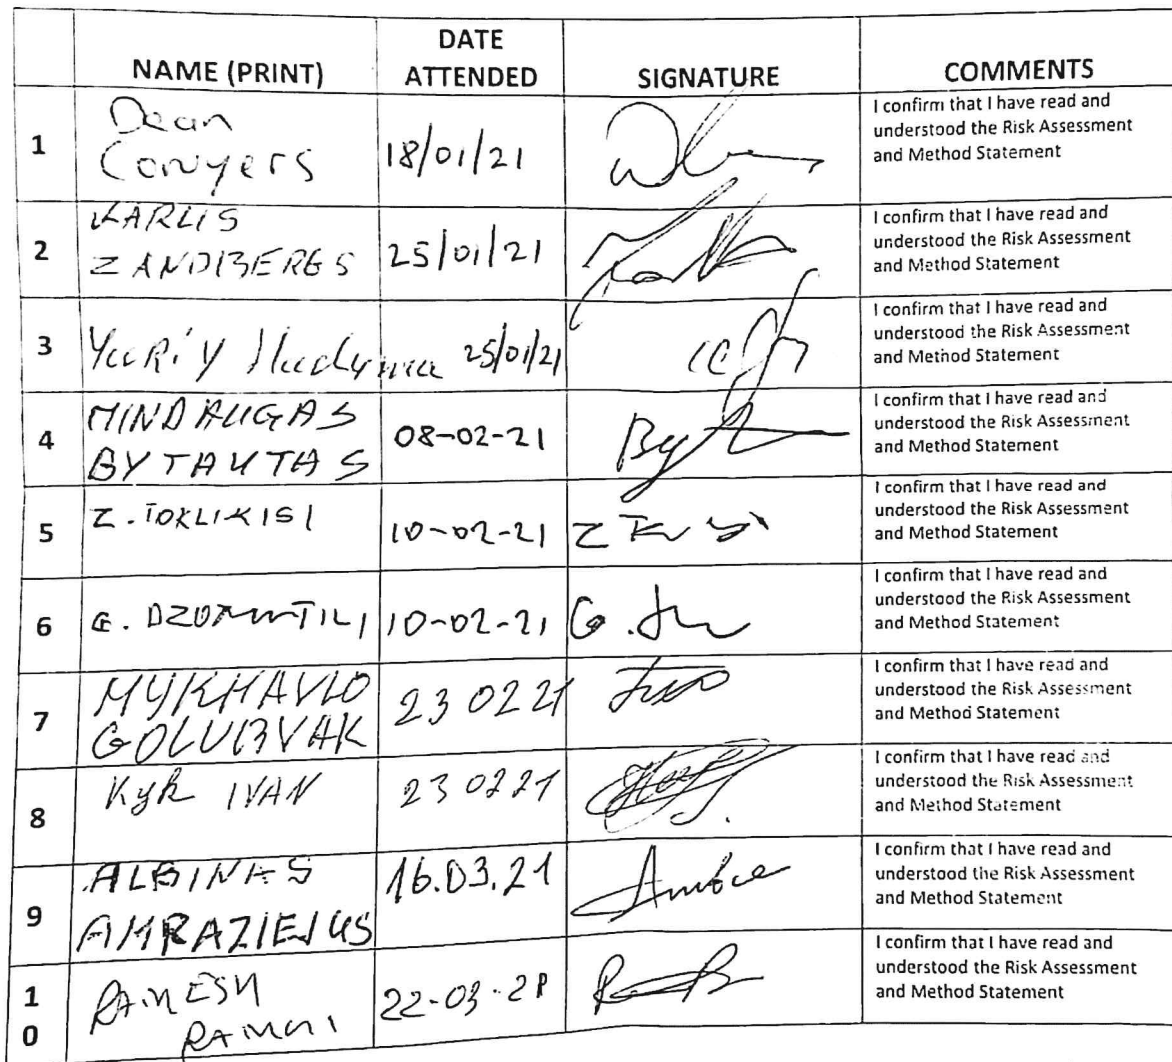 NAME (PRINT)
DATE
ATTENDED
SIGNATURE
COMMENTS
1
Dean
Conyers
18/01/21
I confirm that I have read and
understood the Risk Assessment
and Method Statement
2
KARLIS
ZANDBERGS
25/01/21
I confirm that I have read and
understood the Risk Assessment
and Method Statement
3
YuRiy Hudyma
25/01/21
I confirm that I have read and
understood the Risk Assessment
and Method Statement
4
MINDAUGAS
BYTAUTAS
08-02-21
I confirm that I have read and
understood the Risk Assessment
and Method Statement
5
Z. TOKLIKISI
10-02-21
I confirm that I have read and
understood the Risk Assessment
and Method Statement
6
G.
10-02-21
I confirm that I have read and
understood the Risk Assessment
and Method Statement
7
MYKHAVLO
GOLUBVAK
23 02 21
I confirm that I have read and
understood the Risk Assessment
and Method Statement
8
KyR IVAN
23 02 21
I confirm that I have read and
understood the Risk Assessment
and Method Statement
9
ALBINAS
AMRAZIEJUS
16.03.21
I confirm that I have read and
understood the Risk Assessment
and Method Statement
1
0
RAMESH
22-03-21
I confirm that I have read and
understood the Risk Assessment
and Method Statement